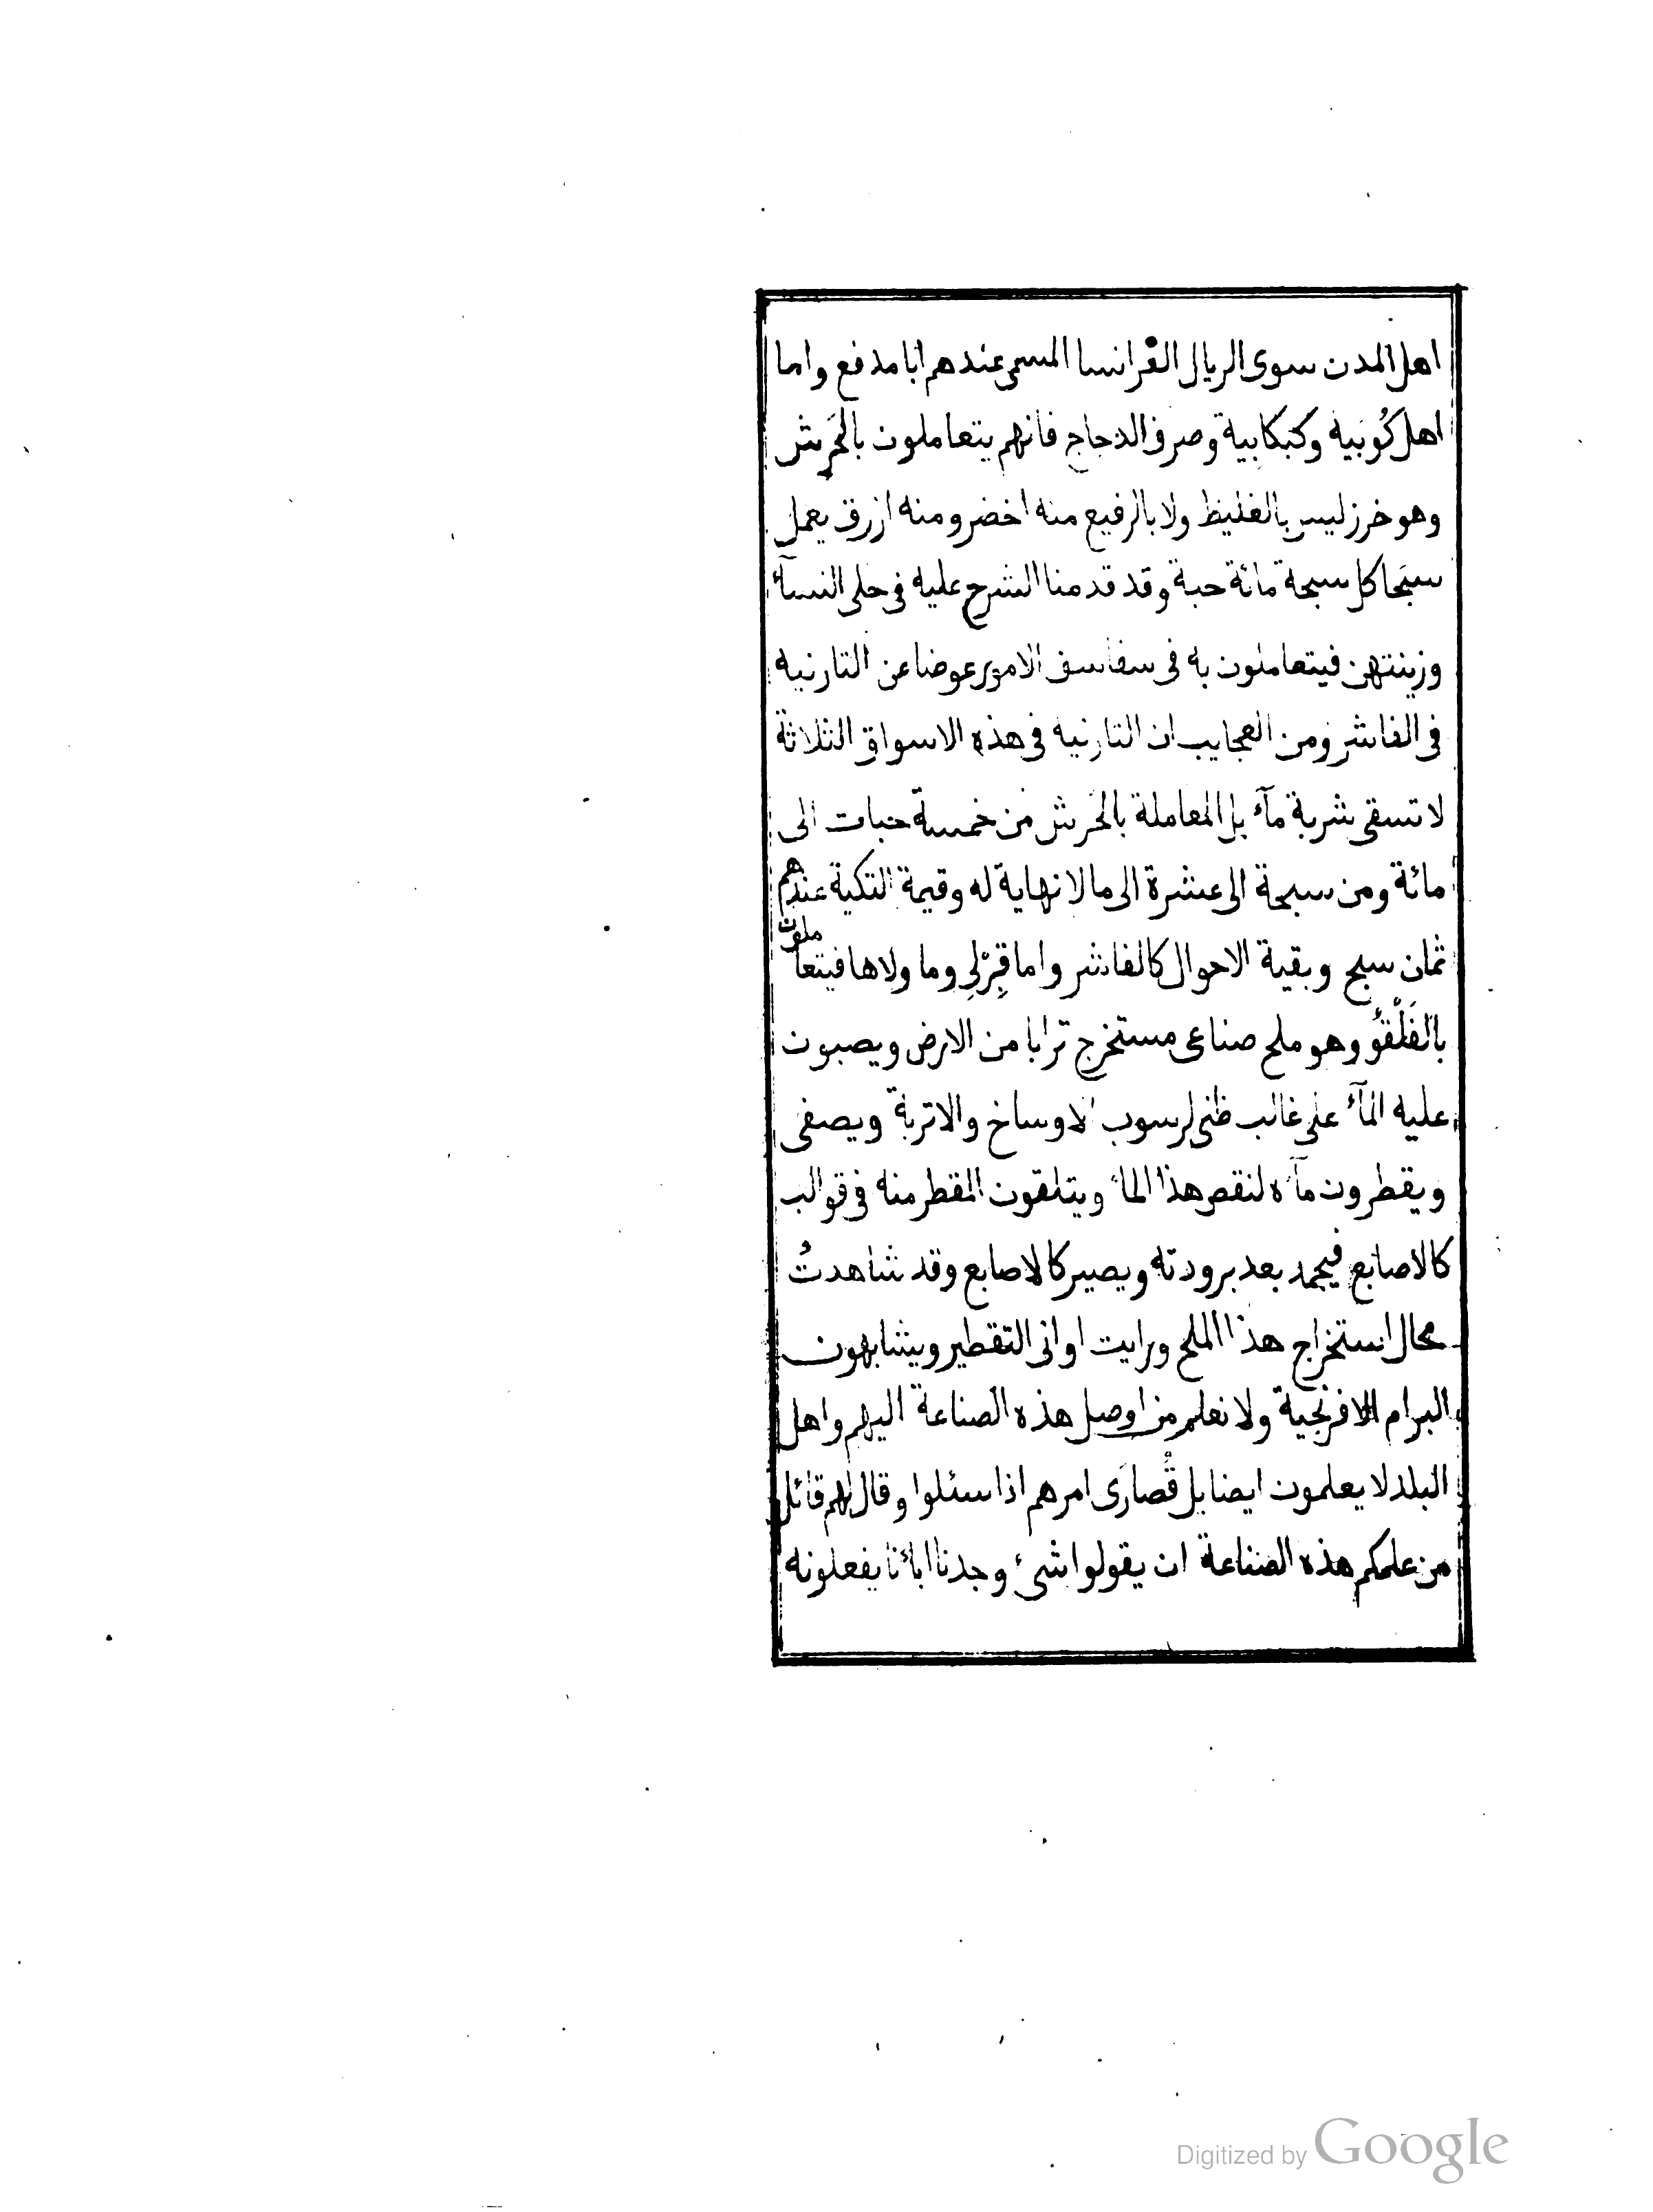 اهل المدن سوى الريال الفرانسا المسمى عندهم ابا مدفع واما
اهل كُوبَيه وكبكابية وصرف الدجاج فانهم يتعاملون بالحَرِش
وهو خرز ليس بالغليظ ولا بالرفيع منه اخضر ومنه ازرق يعمل
سبَحا كل سبحة مائة حبة وقد قدمنا الشرح عليه فى حلى النسآء
وزينتهن فيتعاملون به فى سفاسف الامور عوضا عن التارنيه
فى الفاشر ومن العجايب ان التارنيه فى هذه الاسواق الثلاثة
لا تسقى شربة مآء بل المعاملة بالحَرش من خمسة حبات الى
مائة ومن سبحة الى عشرة الى ما لا نهاية له وقيمة التكية عندهم
ثمان سبح وبقية الاحوال كالفاشر واما قِرْلِى وما ولاها فيتعاملون
بالفَلْقوُ وهو ملح صناعى مستخرج ترابا من الارض ويصبون
عليه المآء على غالب ظنى لرسوب الاوساخ والاتربة ويصفى
ويقطرون مآءه لنقص هذا الماء ويتلقون المقطر منه فى قوالب
كالاصابع فيجمد بعد برودته ويصير كالاصابع وقد شاهدتُ
محال استخراج هذا الملح ورايت اوانى التقطير ويشابهون
البرام الافرنجية ولا نعلم من اوصل هذه الصناعة اليهم واهل
البلد لا يعلمون ايضا بل قُصارَى امرهم اذا سئلوا وقال لهم قائل
من علمكم هذه الصناعة ان يقولوا شىء وجدنا ابائنا يفعلونه
Digitized by Google